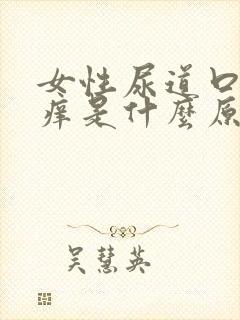 女性尿道口
痒是什麼原
吴慧英